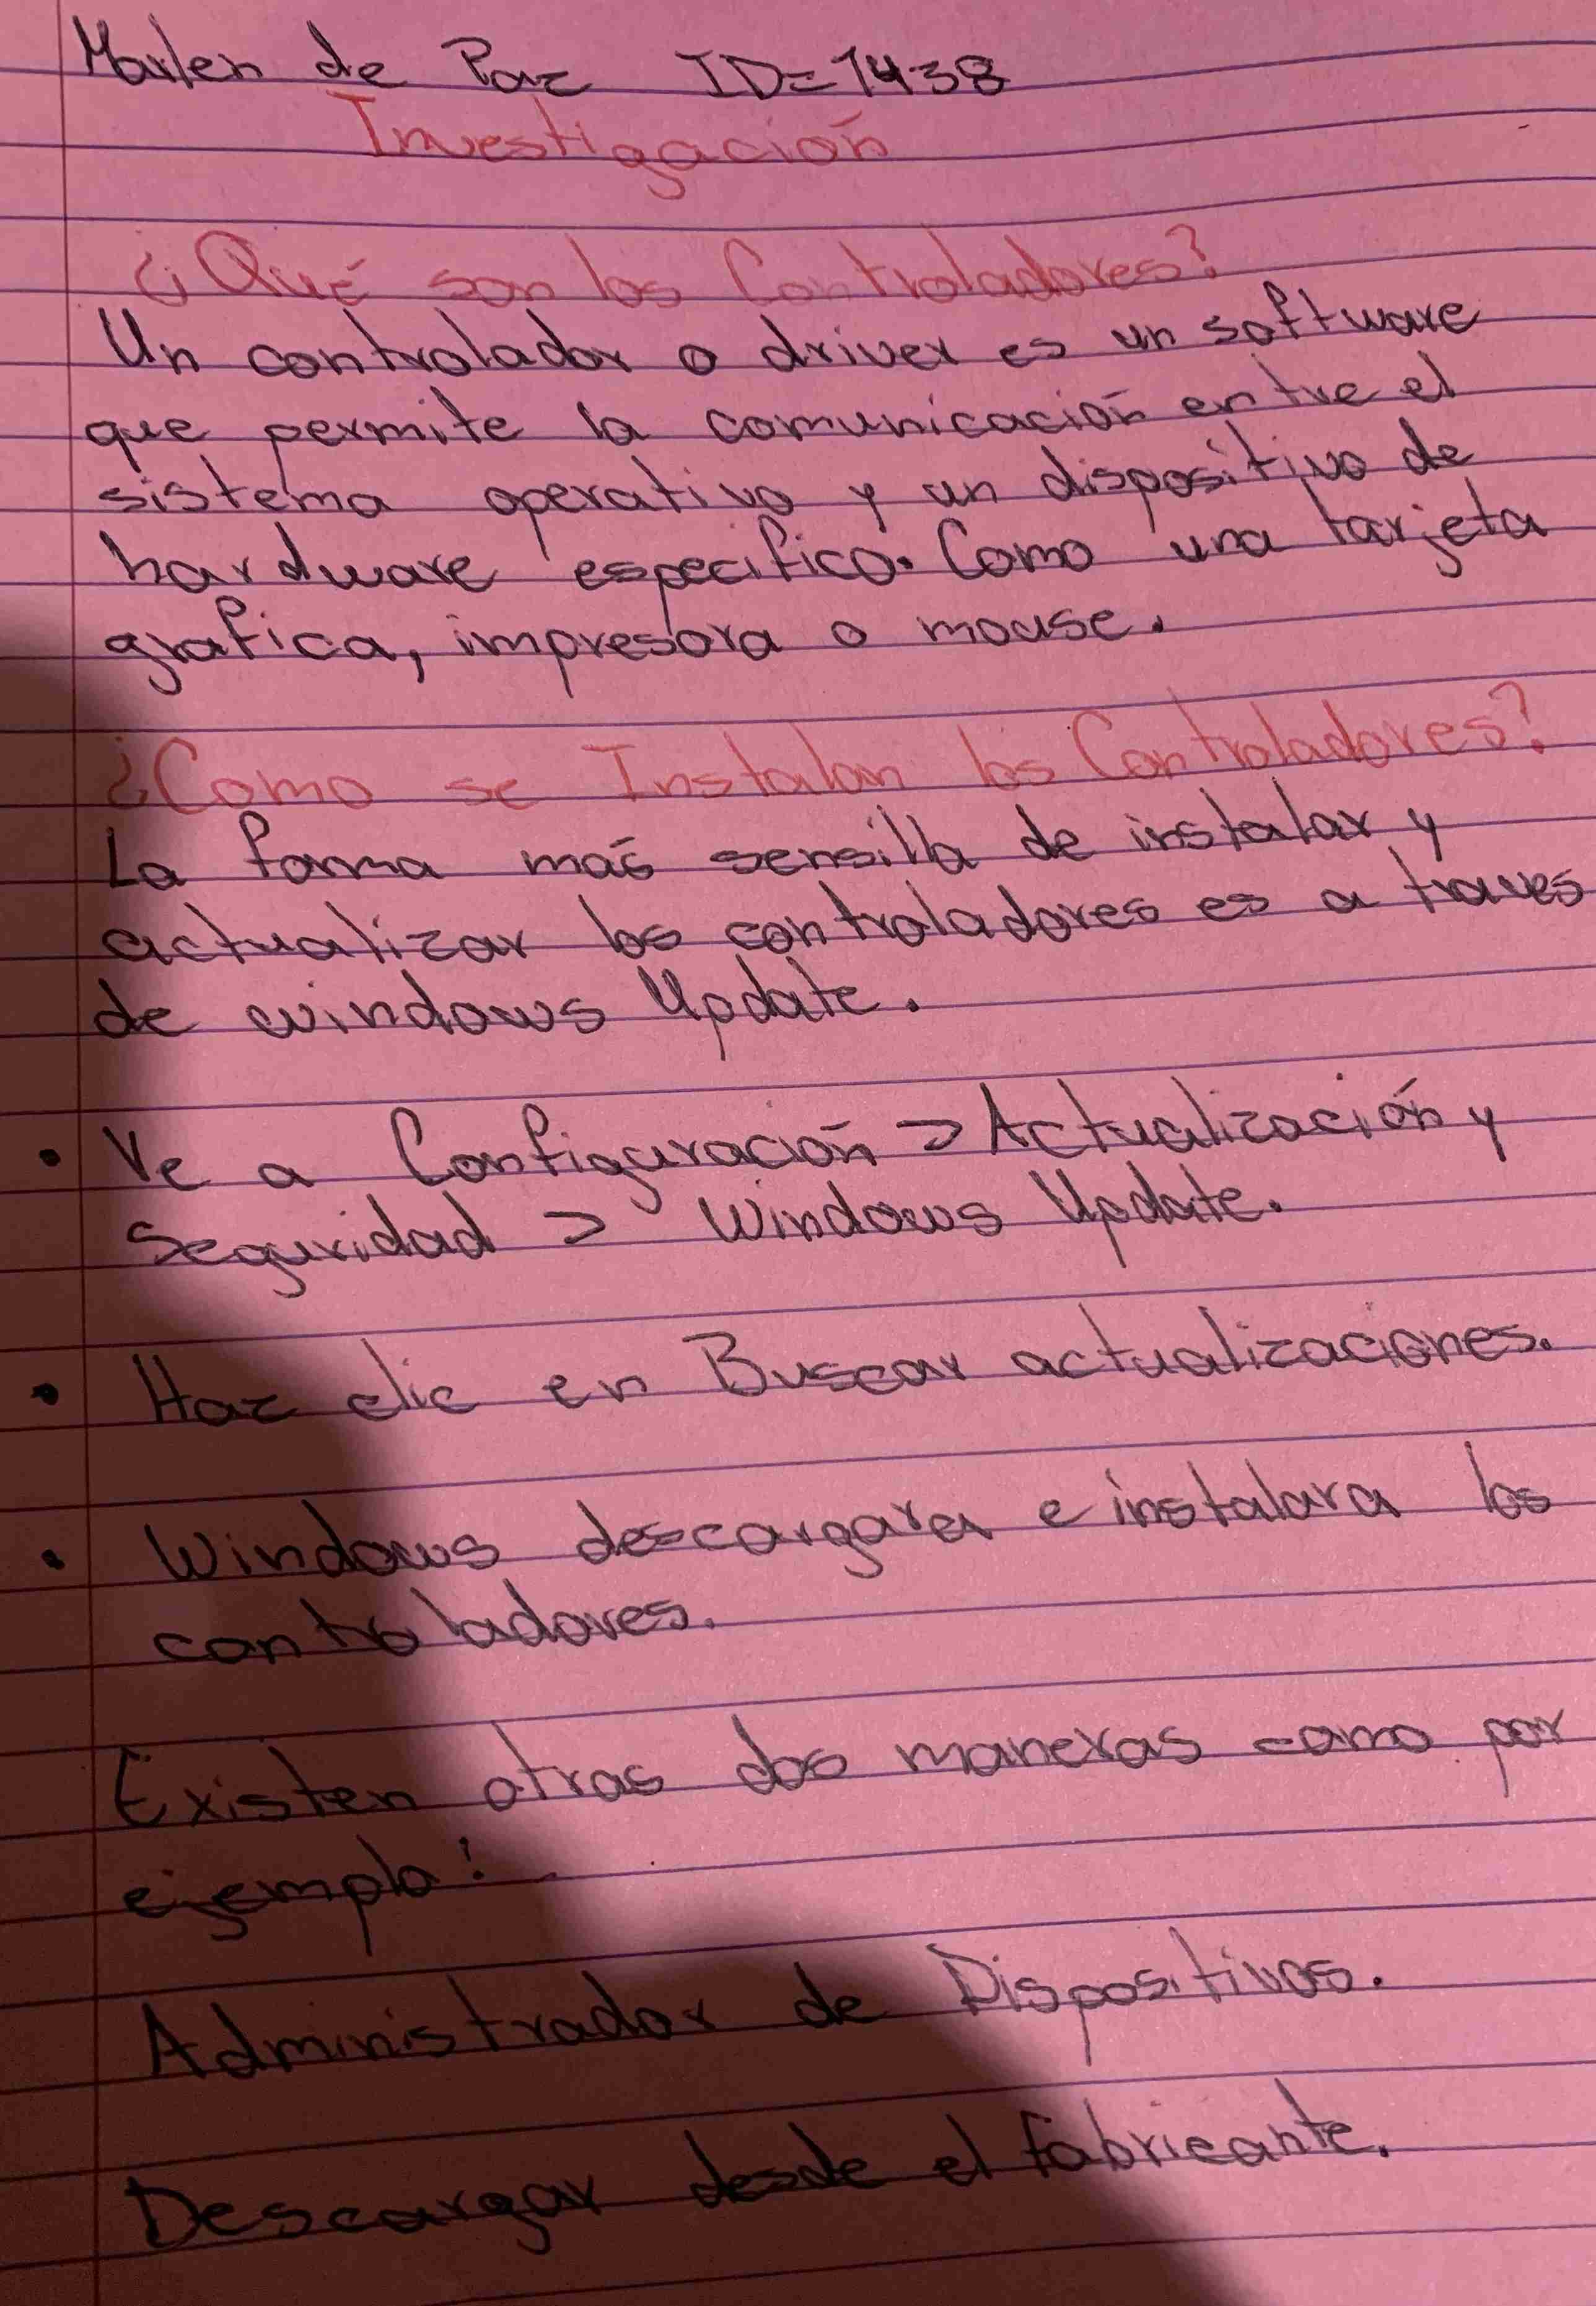 Marlen de Paz ID=1438
Investigación
¿Qué son los Controladores?
Un controlador o driver es un software
que permite la comunicación entre el
sistema operativo y un dispositivo de
hardware especifico. Como una tarjeta
grafica, impresora o mouse.
¿Como se Instalan los Controladores?
La forma más sensilla de instalar y
actualizar los controladores es a traves
de windows Update.
• Ve a Configuración > Actualización y
Seguridad > Windows Update.
• Haz clic en Buscar actualizaciones.
• Windows descargara e instalara los
controladores.
Existen otras dos maneras como por
ejemplo:
Administrador de Dispositivos.
Descargar desde el fabricante.